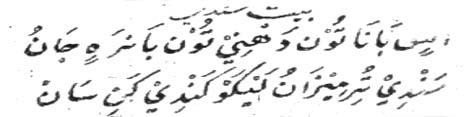 بيت سندي
اسٍ بَانَا تُوْن دَهنِيْ تُوْن بَانرَهٍ جَانُ
سَنْدِيْ تُرمِيْزَانُ لَيْکَوْ کَنْدِيْ کَنِ سَانْ